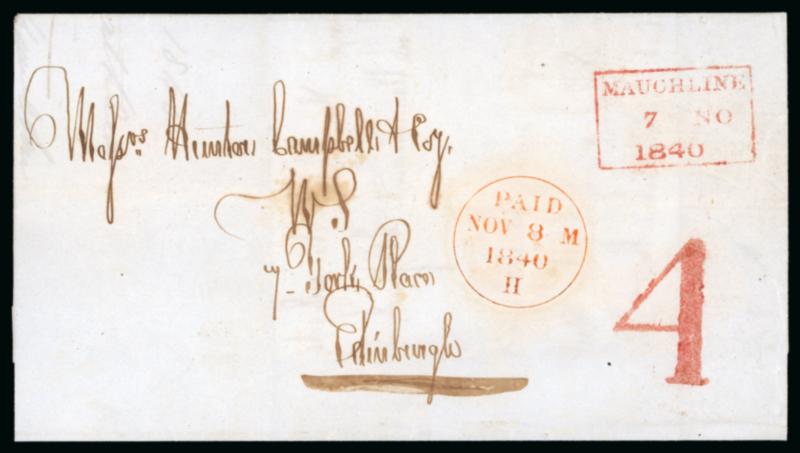 MAUCHLINE
7 NO
1840
Messrs. Hunter Campbell & Coy.
W.S
7 York Place
Edinburgh
PAID
NOV 8 M
1840
H
4